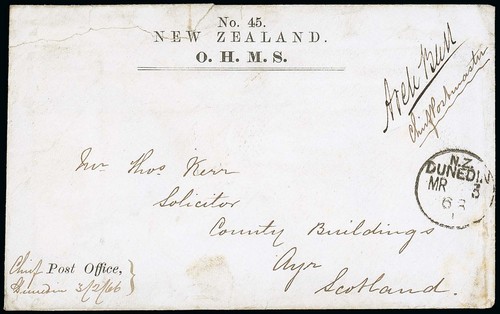 No. 45.
NEW ZEALAND.
O. H. M. S.
Chief Postmaster
N.Z.
DUNEDIN
MR 3
68
Mr Thos Kerr
Solicitor
County Buildings
Ayr
Scotland.
Chief Post Office,
Dunedin 3/2/66